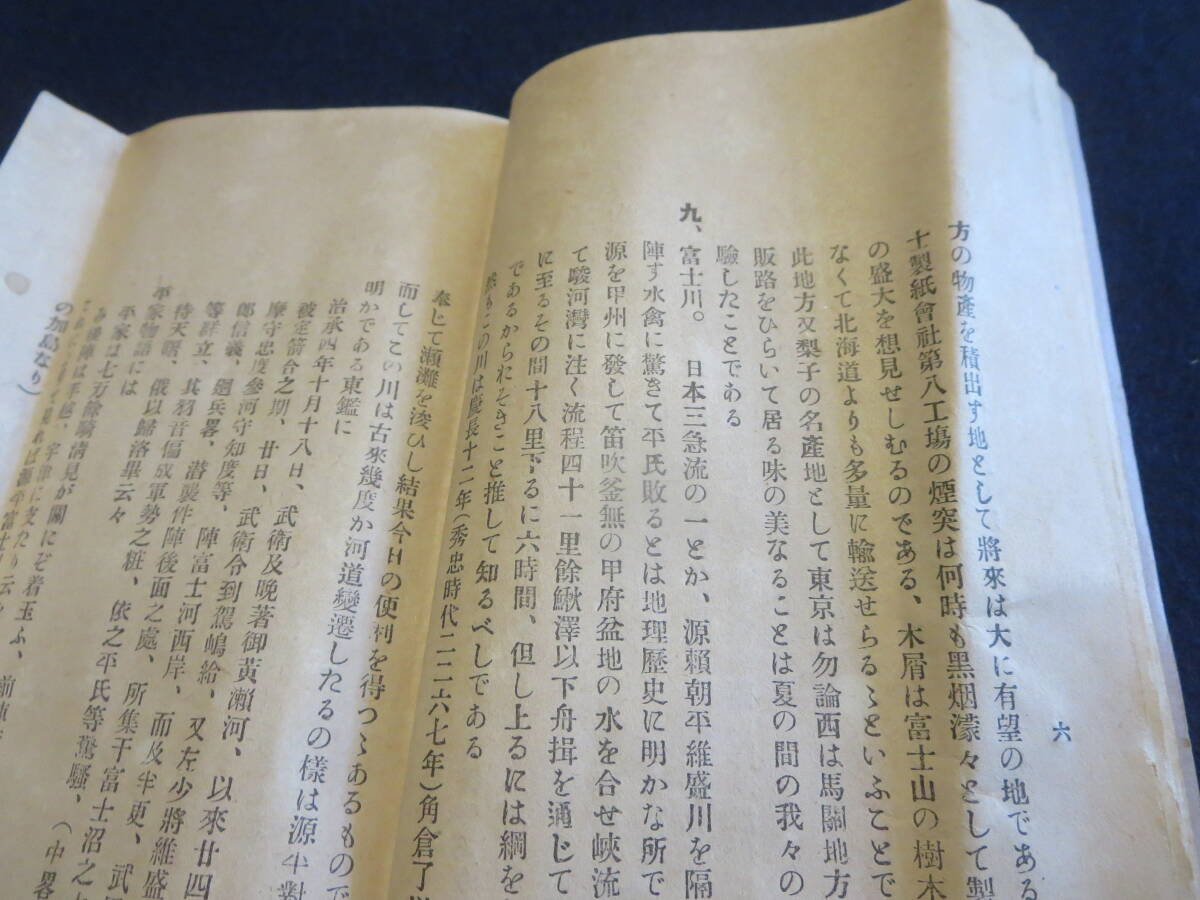 六
方の物產を積出す地として將來は大に有望の地である
士製紙會社第八工塲の煙突は何時も黑烟濛々として製
の盛大を想見せしむるのである、木屑は富士山の樹木
なくて北海道よりも多量に輸送せらるゝといふことで
此地方又梨子の名產地として東京は勿論西は馬關地方
販路をひらいて居る味の美なることは夏の間の我々の
驗したことである
九、富士川。 日本三急流の一とか、源賴朝平維盛川を隔
陣す水禽に驚きて平氏敗るとは地理歷史に明かな所で
源を甲州に發して笛吹釜無の甲府盆地の水を合せ峽流
て駿河灣に注ぐ流程四十一里餘鰍澤以下舟揖を通じて
に至るその間十八里下るに六時間、但し上るには綱を
であるからおそきこと推して知るべしである
もこの川は慶長十二年(秀忠時代二二六七年)角倉了
奉じて瀨灘を浚ひし結果今日の便利を得つゝあるもので
而してこの川は古來幾度か河道變遷したるの樣は源平對
明かである東鑑に
治承四年十月十八日、武衛及晚著御黃瀨河、以來廿四
被定箭合之期、廿日、武衛令到駕嶋給、又左少將維盛
摩守忠度參河守知度等、陣富士河西岸、而及半更、武
郎信義、廻兵畧、潜襲件陣後面之處、所集于富士沼之
等群立、其羽音偏成軍勢之粧、依之平氏等驚騷、(中畧
待天曙、俄以歸洛畢云々
平家物語には
平家は七万餘騎淸見が關にぞ着玉ふ、前陣
後陣は手越、宇津に支たり云々
の加島なり)